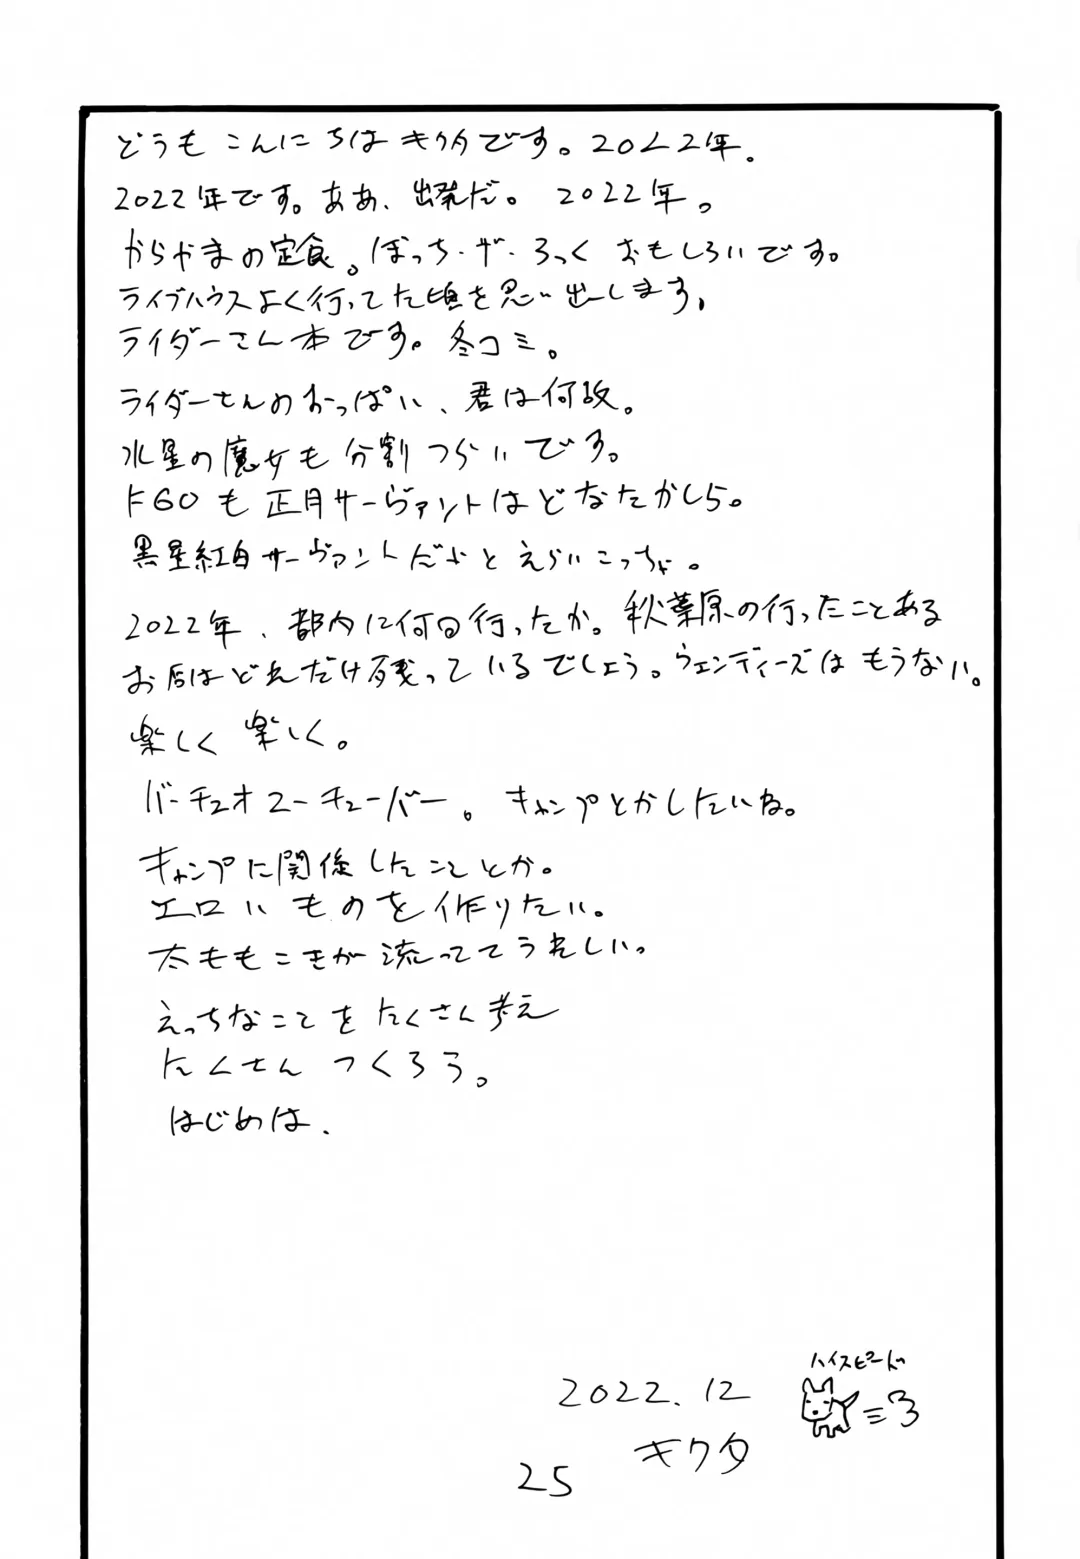 どうも こんにちは キクタです。2022年.
2022年です。ああ、出発だ。 2022年。
からやまの定食。ぼっち・ざ・ろっく おもしろいです。
ライブハウスよく行ってた頃を思い出します。
ライダーさん本です。冬コミ。
ライダーさんのおっぱい、君は何故。
水星の魔女も 分割 つらいです。
FGOも 正月サーヴァントは どなたかしら。
黒星紅白サーヴァントだよと えらいこっちゃ。
2022年、都内に何回行ったか。秋葉原の行ったことある
お店はどれだけ残っているでしょう。ウェンディーズは もうない。
楽しく 楽しく。
バーチュオユーチューバー。 キャンプとかしたいね。
キャンプに関係したことか。
エロい ものを 作りたい。
太ももこきが 流っててうれしい。
えっちなことを たくさん考え
たくさん つくろう。
はじめは、
ハイスピード
2022.12
キクタ
25